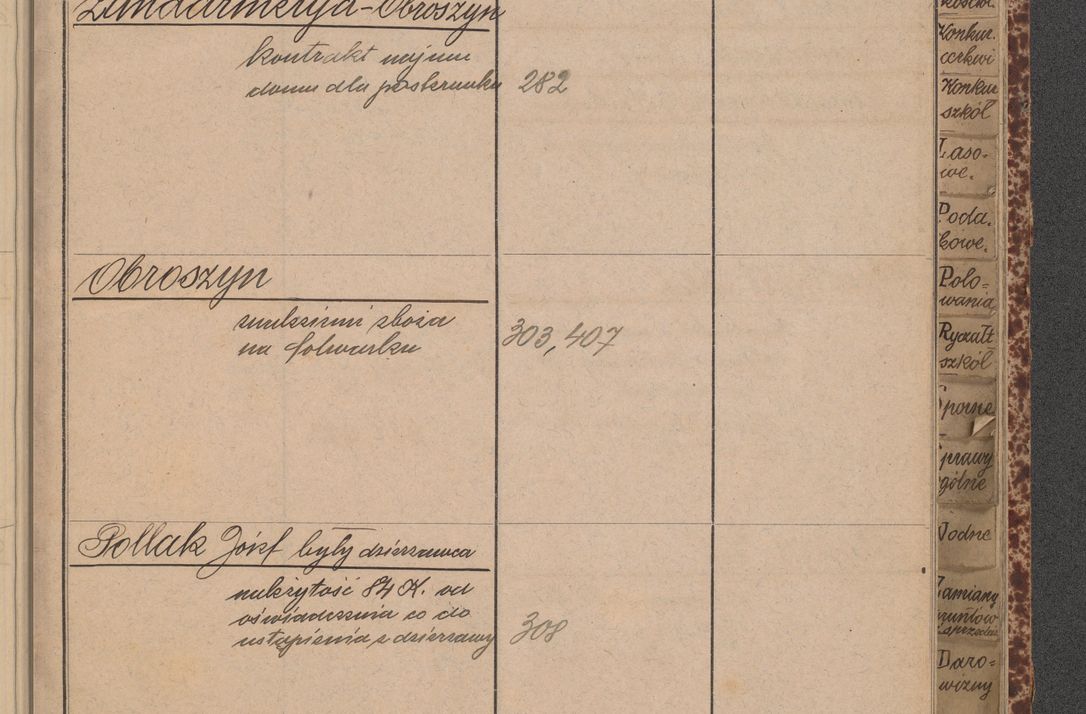 Żandarmerya-Obroszyn
kontrakt najmu
domu dla posterunku 282
Obroszyn
zboża 303, 407
na folwarku
Pollak Józef były dzierzawca
należytość 84 K. od
oświadczenia co do
ustąpienia z dzierzawy 308
Konkur.
cerkwi
Konkur
szkół
Laso-
we.
Poda.
kowe.
Polo-
wania
Ryczałt
szkół
sporne
sprawy
ogólne
Wodne
Zamiany
gruntów
sprzedaż
Daro-
wizny